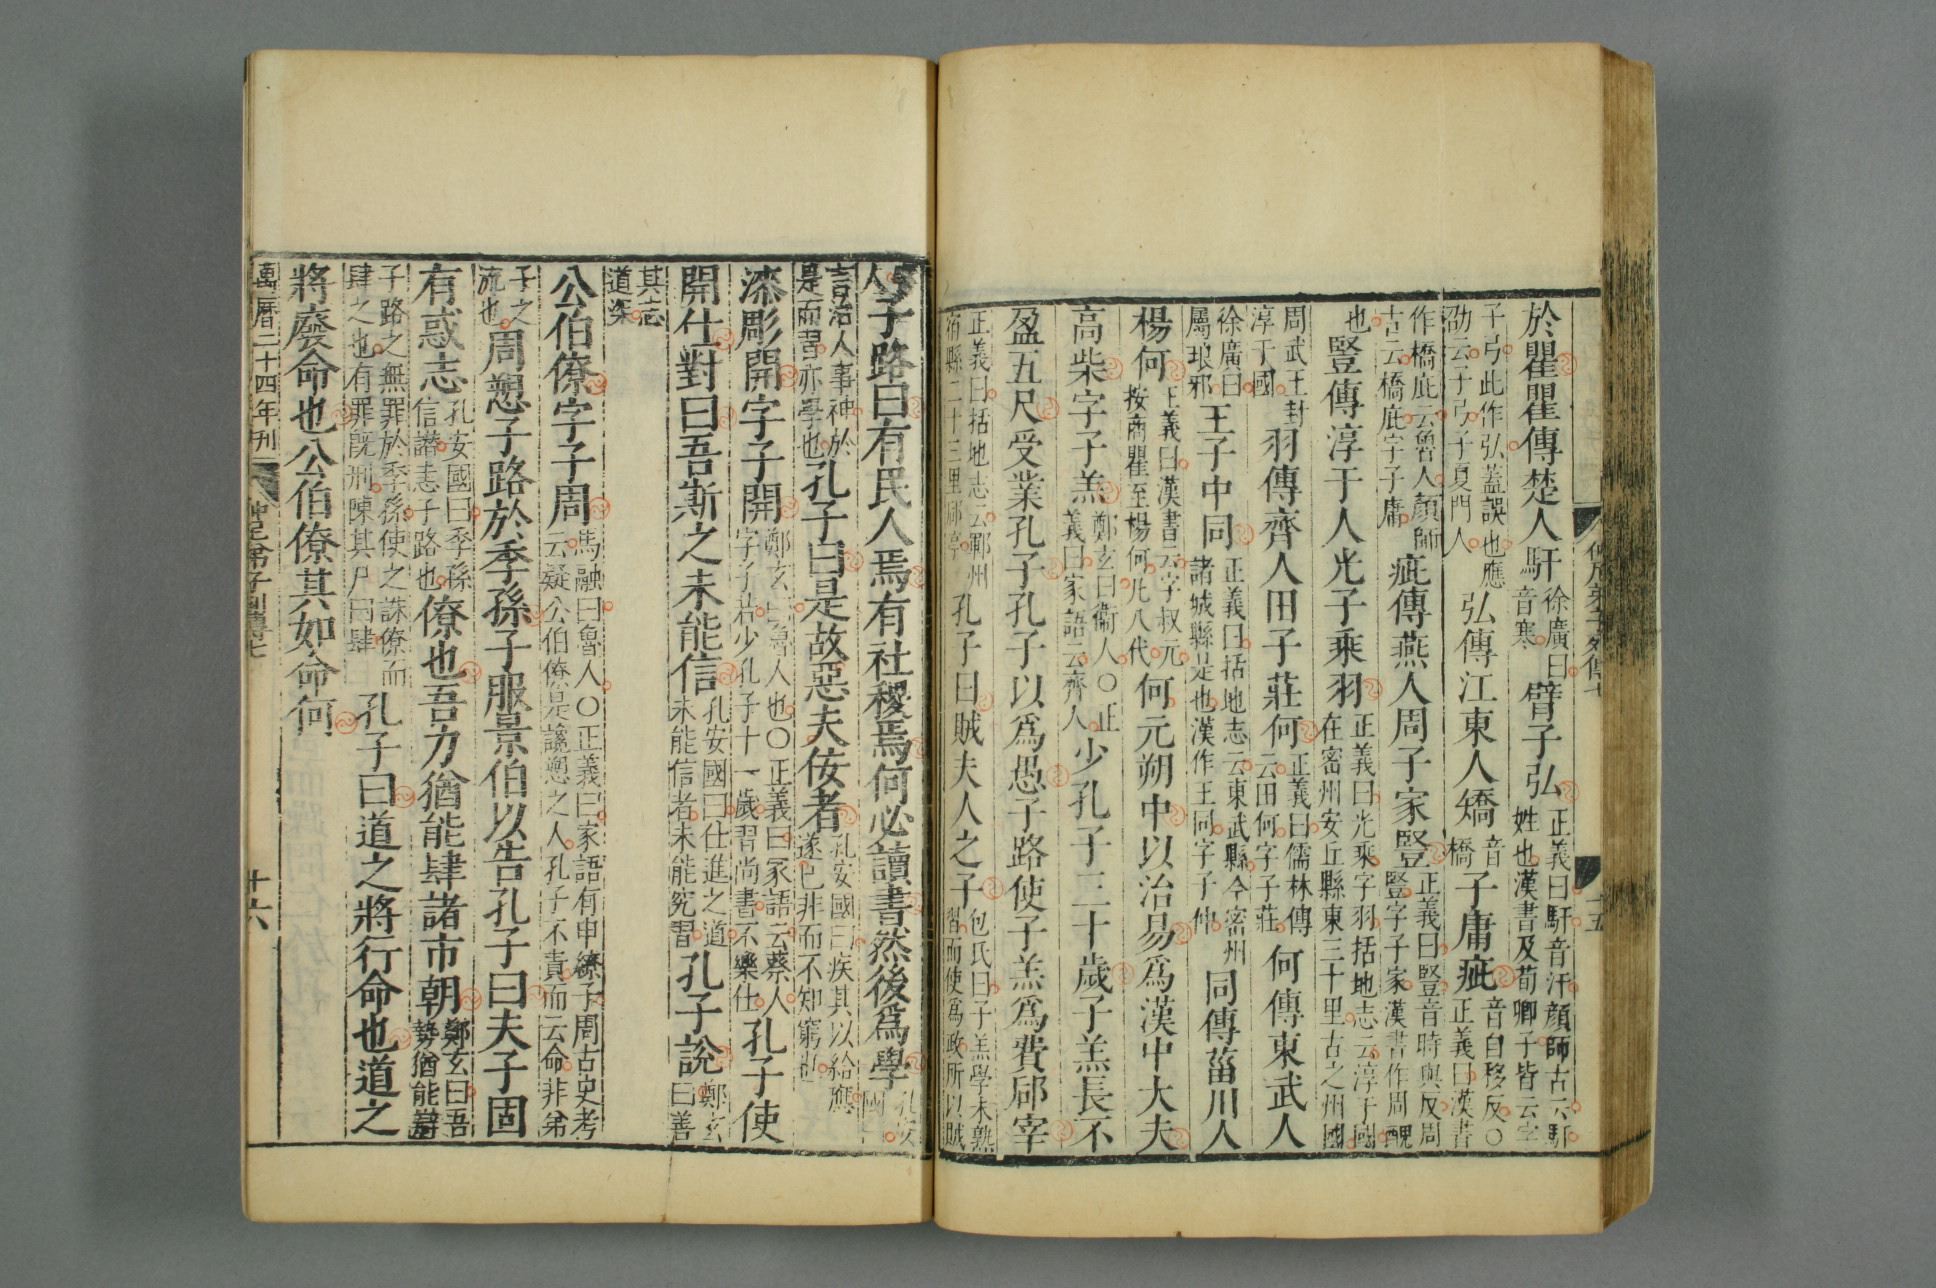 於瞿瞿傳楚人馯徐廣曰音寒臂子弘正義曰馯音汗顔師古云馯姓也漢書及荀卿子皆云字
子弓此作弘蓋誤也應劭云子弓子夏門人弘傳江東人矯音橋子庸疵音自移反○正義曰漢書
作橋庇云魯人顔師古云橋庇字子庸疵傳燕人周子家豎正義曰豎音時與反周豎字子家漢書作周醜
也豎傳淳于人光子乘羽正義曰光乘字羽括地志云淳于國在密州安丘縣東三十里古之州國
周武王封淳于國羽傳齊人田子莊何正義曰儒林傳云田何字子莊何傳東武人
徐廣曰屬琅邪王子中同正義曰括地志云東武縣今密州諸城縣是也漢作王同字子仲同傳菑川人
楊何正義曰漢書云字叔元按商瞿至楊何凡八代何元朔中以治易爲漢中大夫
高柴字子羔鄭玄曰衞人○正義曰家語云齊人少孔子三十歲子羔長不
盈五尺受業孔子孔子以爲愚子路使子羔爲費郈宰
正義曰括地志云鄆州宿縣二十三里郈亭孔子曰賊夫人之子包氏曰子羔學未熟習而使爲政所以賊
人子路曰有民人焉有社稷焉何必讀書然後爲學孔安國
言治人事神於是而習亦學也孔子曰是故惡夫佞者孔安國曰疾其以給應遂己非而不知窮也
漆彫開字子開鄭玄曰魯人也○正義曰家語云蔡人字子若少孔子十一歲習尚書不樂仕孔子使
開仕對曰吾斯之未能信孔安國曰仕進之道未能信者未能究習孔子說鄭玄曰善
其志道深
公伯僚字子周馬融曰魯人○正義曰家語有申繚子周古史考云疑公伯僚是讒愬之人孔子不責而云命非弟
子之流也周愬子路於季孫子服景伯以告孔子曰夫子固
有惑志孔安國曰季孫信譖恚子路也僚也吾力猶能肆諸市朝鄭玄曰吾勢猶能辯
子路之無罪於季孫使之誅僚而肆之也有罪旣刑陳其尸曰肆孔子曰道之將行命也道之
將廢命也公伯僚其如命何
萬曆二十四年刊 仲尼弟子列傳七 十六